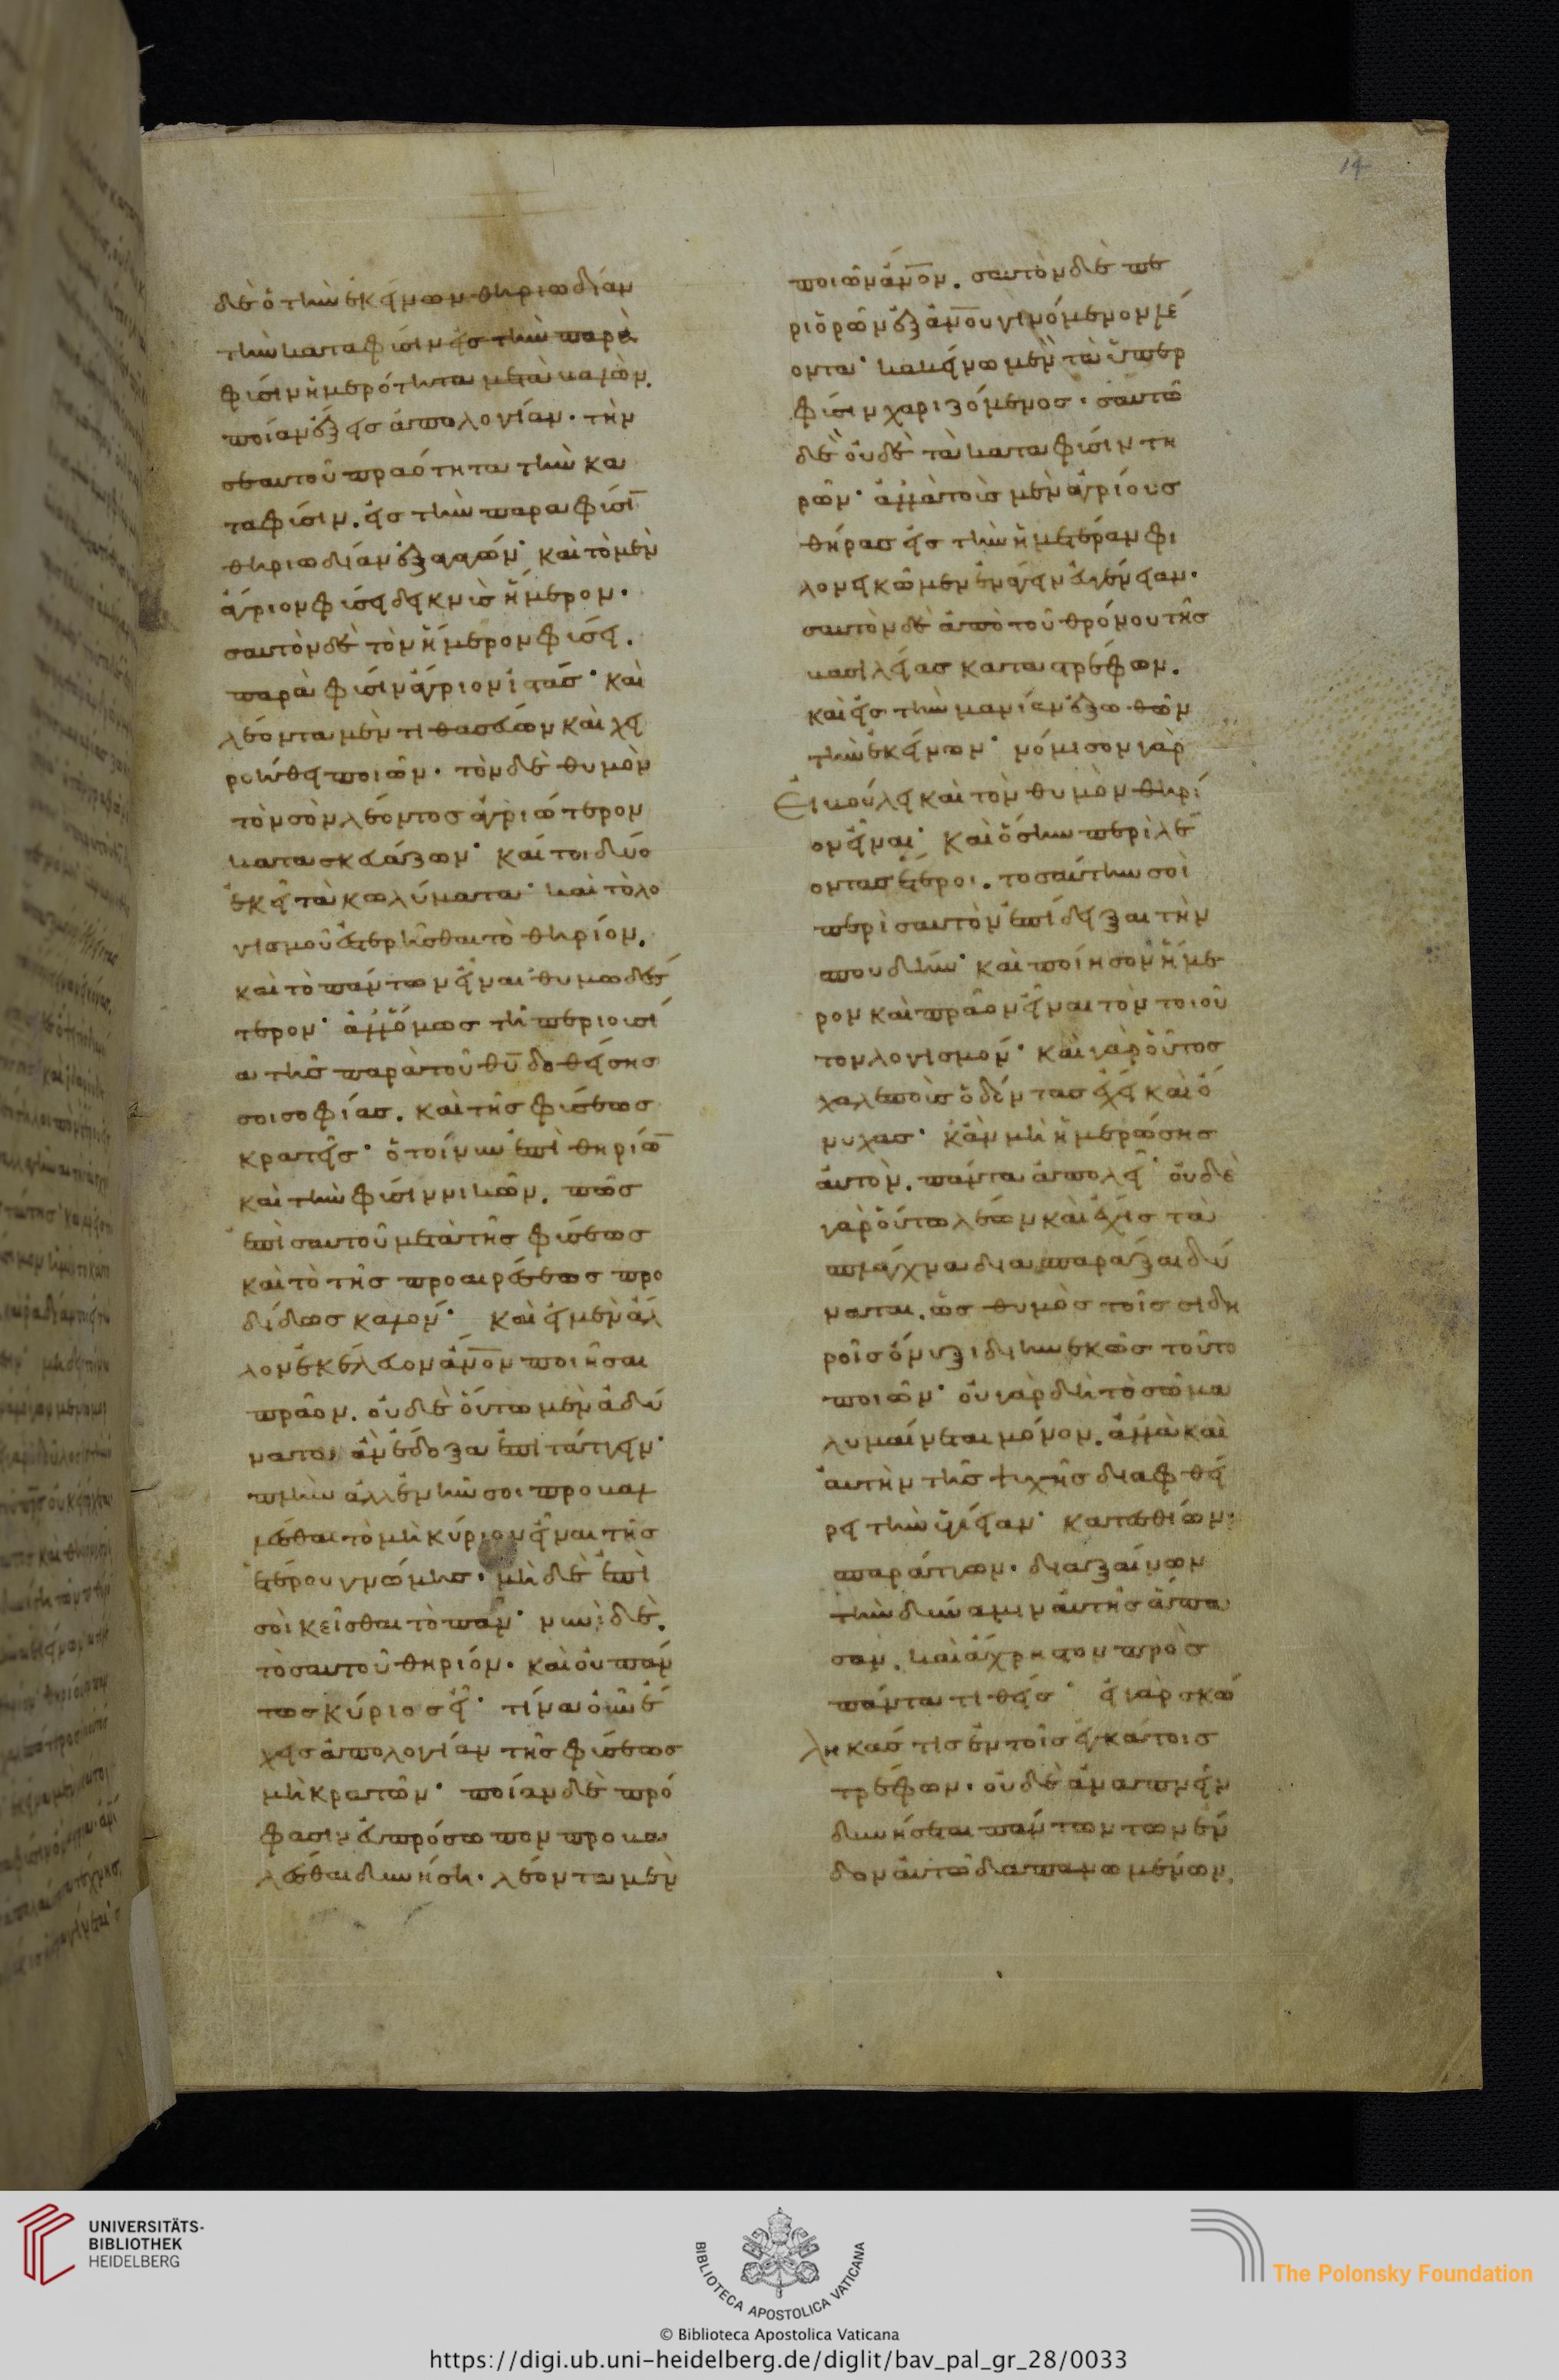 δὲ ὁ τὴν ἐκείνων θηριωδίαν
τὴν κατα φύσιν εἰς τὴν παρὰ
φύσιν ἡμερότητα μεταβαλὼν.
ποίαν ἕξεις ἀπολογίαν. τὴν
σεαυτοῦ πραότητα τὴν κα
τα φύσιν. εἰς τὴν παρα φύσῑ
θηριωδίαν ἐξαγαγών· καὶ τὸ μὲν
ἄγριον φύσει δεικνὺς ἥμερον.
σαυτὸν δὲ τὸν ἥμερον φύσει.
παρὰ φύσιν ἄγριον ἱστάς· καὶ
λέοντα μὲν τιθασεύων καὶ χει
ροήθει ποιῶν. τὸν δὲ θυμὸν
τὸν σὸν λέοντος ἀγριώτερον
κατασκευάζων· καίτοι δύο
ἐκεῖ τὰ κωλύματα· καὶ τὸ λο
γισμοῦ ἐστερῆσθαι τὸ θηρίον.
καὶ τὸ πάντων εἶναι θυμωδέσ
τερον· ἀλλ' ὅμως τῇ περιουσί
α τῆς παρὰ τοῦ θῡ δοθείσης
σοι σοφίας. καὶ τῆς φύσεως
κρατεῖς· ὁ τοίνυν ἐπὶ θηριω̄
καὶ τὴν φύσιν νικῶν. πῶς
ἐπὶ σαυτοῦ μετὰ τῆς φύσεως
καὶ τὸ τῆς προαιρέσεως προ
δίδως καλόν· καὶ εἰ μὲν ἄλ
λον ἐκέλευον ἄν̅ο̅ν ποιῆσαι
πρᾶον. οὐδὲ οὕτω μὲν ἀδύ
νατα ἂν ἔδοξα ἐπιτάττειν·
πλὴν ἀλλ' ἐνῆν σοι προβαλ
λέσθαι τὸ μὴ κύριον εἶναι τῆς
ἑτέρου γνώμης. μὴ δὲ ἐπὶ
σοὶ κεῖσθαι τὸ πᾶν· νυνὶ δὲ.
τὸ σαυτοῦ θηρίον. καὶ οὗ πάν
τως κύριος εἶ· τίνα οὖν ἔ
χεις ἀπολογίαν τῆς φύσεως
μὴ κρατῶν· ποίαν δὲ πρό
φασιν εὐπρόσωπον προβα
λέσθαι δυνήσῃ. λέοντα μὲν
ποιῶν ἄν̅ο̅ν. σαυτὸν δὲ πε
ριορῶν ἐξ ἀν̅ο̅υ γινόμενον λέ
οντα· κακείνω μὲν τὰ ὑπερ
φύσιν χαριζόμενος. σαυτῶ
δὲ οὐδὲ τὰ κατα φύσιν τη
ρῶν· ἀλλὰ τοὺς μὲν ἀγρίους
θῆρας εἰς τὴν ἡμετέραν φι
λονεικῶμεν ἐνάγειν εὐγένειαν.
σαυτὸν δὲ ἀπὸ τοῦ θρόνου τῆς
βασιλείας καταστρέφων.
καὶ εἰς τὴν μανίαν ἐξωθῶν
τὴν ἐκείνων· νόμισον γὰρ
Εἰ βούλει καὶ τὸν θυμὸν θηρί
ον εἶναι· καὶ ὅσην περὶ λέ
οντας ἕτεροι. τοσαύτην σοὶ
περὶ σαυτὸν ἐπίδειξαι τὴν
σπουδὴν· καὶ ποίησον ἥμε
ρον καὶ πρᾶον εἶναι τὸν τοιοῦ
τον λογισμόν· καὶ γὰρ οὗτος
χαλεποὺς ὀδόντας ἔχει καὶ ὄ
νυχας· κἂν μὴ ἡμερώσης
αὐτὸν. πάντα ἀπολεῖ· οὐδὲ
γὰρ οὕτω λέων καὶ ἔχις τὰ
σπλάγχνα διασπαράξαι δύ
ναται. ὡς θυμὸς τοῖς σιδη
ροῖς ὄνυξι διηνεκῶς τοῦτο
ποιῶν· οὐ γὰρ δὴ τὸ σῶμα
λυμαίνεται μόνον. ἀλλὰ καὶ
αὐτὴν τῆς ψυχῆς διαφθεί
ρει τὴν ὑγίειαν· κατεσθίων.
σπαράττων. διαξαίνων
τὴν δύναμιν αὐτῆς ἅπα
σαν. καὶ ἄχρηστον πρὸς
πάντα τιθείς· εἰ γὰρ σκώ
ληκάς τις ἐν τοῖς ἐγκάτοις
τρέφων. οὐδὲ ἀναπνεῖν
δυνήσεται πάντων τῶν ἔν
δον αὐτῶ δαπανωμένων.
14
UNIVERSITÄTS-
BIBLIOTHEK
HEIDELBERG
BIBLIOTECA APOSTOLICA VATICANA
The Polonsky Foundation
© Biblioteca Apostolica Vaticana
https://digi.ub.uni-heidelberg.de/diglit/bav_pal_gr_28/0033